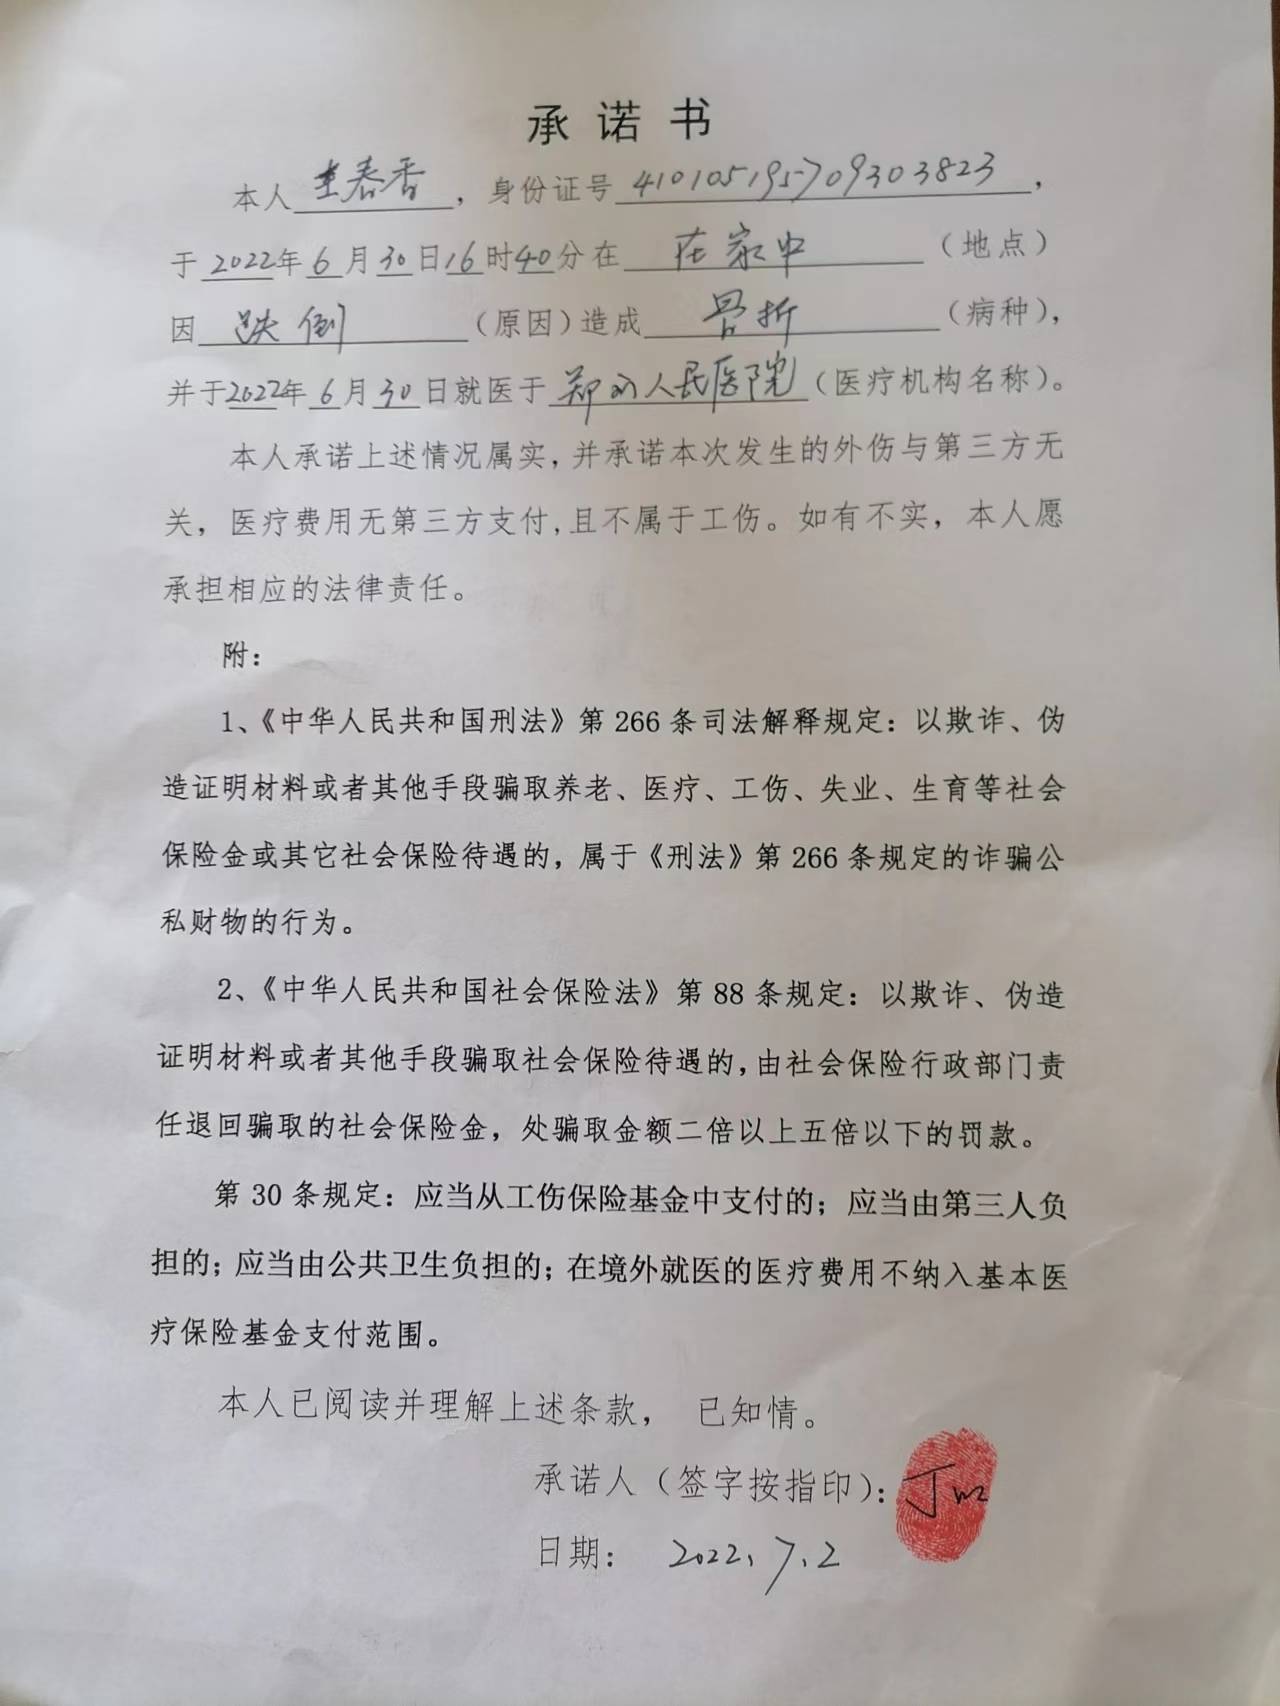 承诺书
本人 王春香，身份证号 410105195709303823，
于 2022年 6 月 30 日 16 时 40 分在 在家中 （地点）
因 跌倒 （原因）造成 骨折 （病种），
并于2022年 6 月 30 日就医于 郑州人民医院（医疗机构名称）。
本人承诺上述情况属实，并承诺本次发生的外伤与第三方无
关，医疗费用无第三方支付，且不属于工伤。如有不实，本人愿
承担相应的法律责任。
附：
1、《中华人民共和国刑法》第 266 条司法解释规定：以欺诈、伪
造证明材料或者其他手段骗取养老、医疗、工伤、失业、生育等社会
保险金或其它社会保险待遇的，属于《刑法》第 266 条规定的诈骗公
私财物的行为。
2、《中华人民共和国社会保险法》第 88 条规定：以欺诈、伪造
证明材料或者其他手段骗取社会保险待遇的，由社会保险行政部门责
任退回骗取的社会保险金，处骗取金额二倍以上五倍以下的罚款。
第 30 条规定：应当从工伤保险基金中支付的；应当由第三人负
担的；应当由公共卫生负担的；在境外就医的医疗费用不纳入基本医
疗保险基金支付范围。
本人已阅读并理解上述条款， 已知情。
承诺人（签字按指印）：丁
日期： 2022、7、2